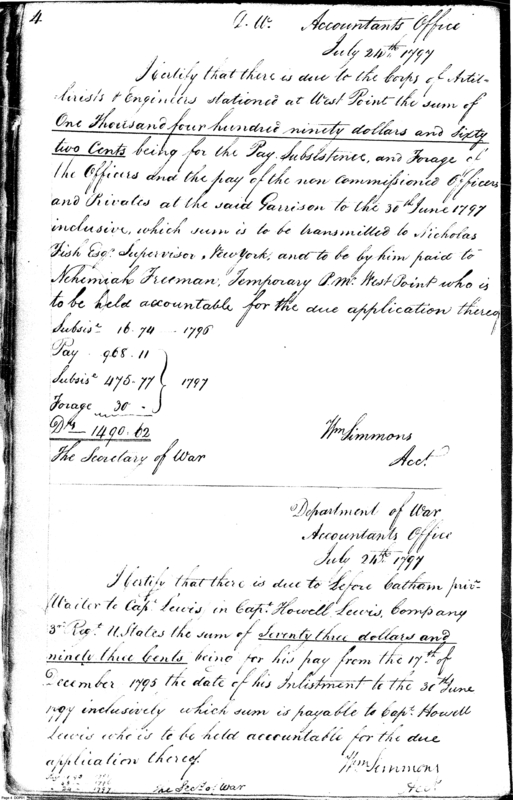 4
D. W. Accountants Office
July 24th 1797
I Certify that there is due to the Corps of Artil-
lerists & Engineers stationed at West Point the sum of
One Thousand four hundred ninety dollars and Sixty
two Cents being for the Pay Subsistence, and Forage of
the Officers and the pay of the non commissioned Officers
and Privates at the said Garrison to the 30th June 1797
inclusive, which sum is to be transmitted to Nicholas
Fish Esqr. Supervisor, New York, and to be by him paid to
Nehemiah Freeman, Temporary P.Mr. West Point who is
to be held accountable for the due application thereof
Subsisce 16.74 - 1796
Pay - 968.11
Subsisce 475.77 } 1797
Forage 30 -
Drs 1490.62
Wm Simmons
The Secretary of War Acct.
Department of War
Accountants Office
July 24th 1797
I Certify that there is due to Catham priv.
Waiter to Capt. Lewis in Capt. Howell Lewis, Company
3d Regt. U. States the sum of Seventy three dollars and
ninety three Cents being for his pay from the 17th of
December 1795 the date of his Inlistment to the 30th June
1797 inclusively which sum is payable to Capt. Howell
Lewis who is to be held accountable for the due
application thereof.
Wm Simmons
The Secy. of War Acct.